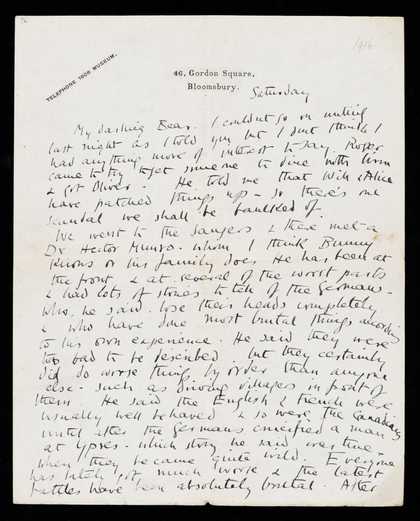 1916
TELEPHONE 1608 MUSEUM.
46, Gordon Square,
Bloomsbury.
Saturday
My dashing Bear. I couldnt go on writing
last night as I told you but I dont think I
had anything more of interest to say. Roger
came to try & get someone to dine with him
& got Oliver. He told me that Will & Alice
have patched things up - so there's one
scandal we shall be baulked of.
We went to the Sangers & there met a
Dr Hector Munro - whom I think Bunny
knows or his family does. He has been at
the front & at several of the worst parts
& had lots of stories to tell of the Germans -
who, he said, lose their heads completely
& who have done most brutal things according
to his own experience. He said they were
too bad to be described but they certainly
did do worse things by order than anyone
else - such as driving villagers in front of
them. He said the English & French were
usually well behaved & so were the Canadians
until after the Germans crucified a man
at Ypres - which story he said was true -
when they became quite wild. Everyone
has lately got much worse & the latest
battles have been absolutely brutal. After